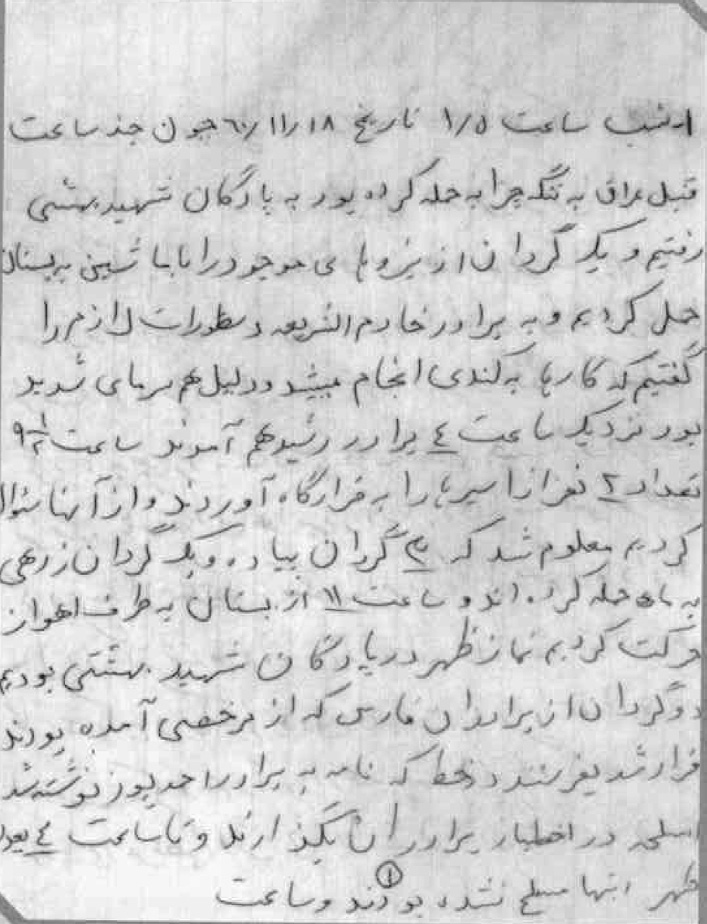 امشب ساعت ۱/۵ تاریخ ۶۰/۱۱/۱۸ چون چند ساعت
قبل عراق به تنگه چزابه حمله کرده بود به پادگان شهید بهشتی
رفتیم و یک گردان از نیروهای موجود را با ماشین به بستان
حمل کردیم و به برادر خادم الشریعه دستورات لازم را
گفتیم که کارها به کندی انجام میشد و دلیل هم سرمای شدید
بود نزدیک ساعت ٤ برادر رشید هم آمدند ساعت ۹ ۱/۲
تعداد ۲ نفر از اسیرها را به قرارگاه آوردند و از آنها سئوال
کردیم معلوم شد که گردان پیاده و یک گردان زرهی
به ما حمله کرده اند و ساعت ۱۱ از بستان به طرف اهواز
حرکت کردیم نماز ظهر در پادگان شهید بهشتی بودیم
دو گردان از برادران فارس که از مرخصی آمده بودند
قرار شد بفرستند خط که نامه به برادر احمدپور نوشته شد
اسلحه در اختیار برادران بگذارند و تا ساعت ٤ بعد
ظهر اینها مسلح نشده بودند و ساعت
۱